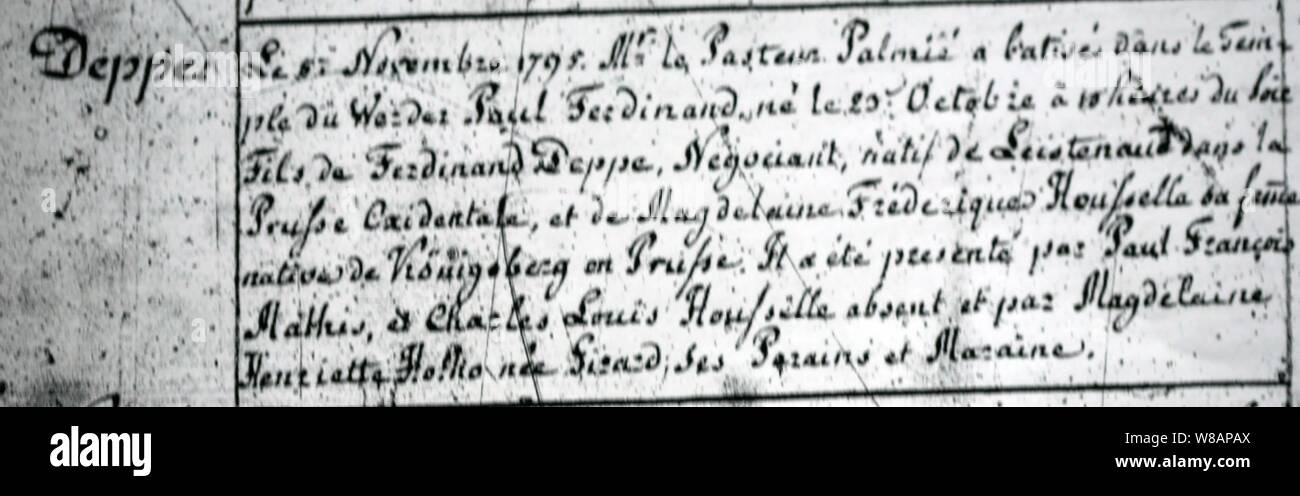 Deppe
Le 5: Novembre 1795. Mr. le Pasteur Palmié a batisé dans le Tem-
ple du Werder Paul Ferdinand, né le 23: Octobre à 10 heures du soir
Fils de Ferdinand Deppe, Négociant, natif de Leistenau dans la
Prusse Occidentale, et de Magdelaine Fréderique Housselle sa femme
native de Königsberg en Prusse. Il a été presenté par Paul François
Mathis, & Charles Louis Housselle absent et par Magdelaine
Henriette Hotho née Girard, ses Parains et Maraine.
alamy
Image ID: W8APAX
www.alamy.com